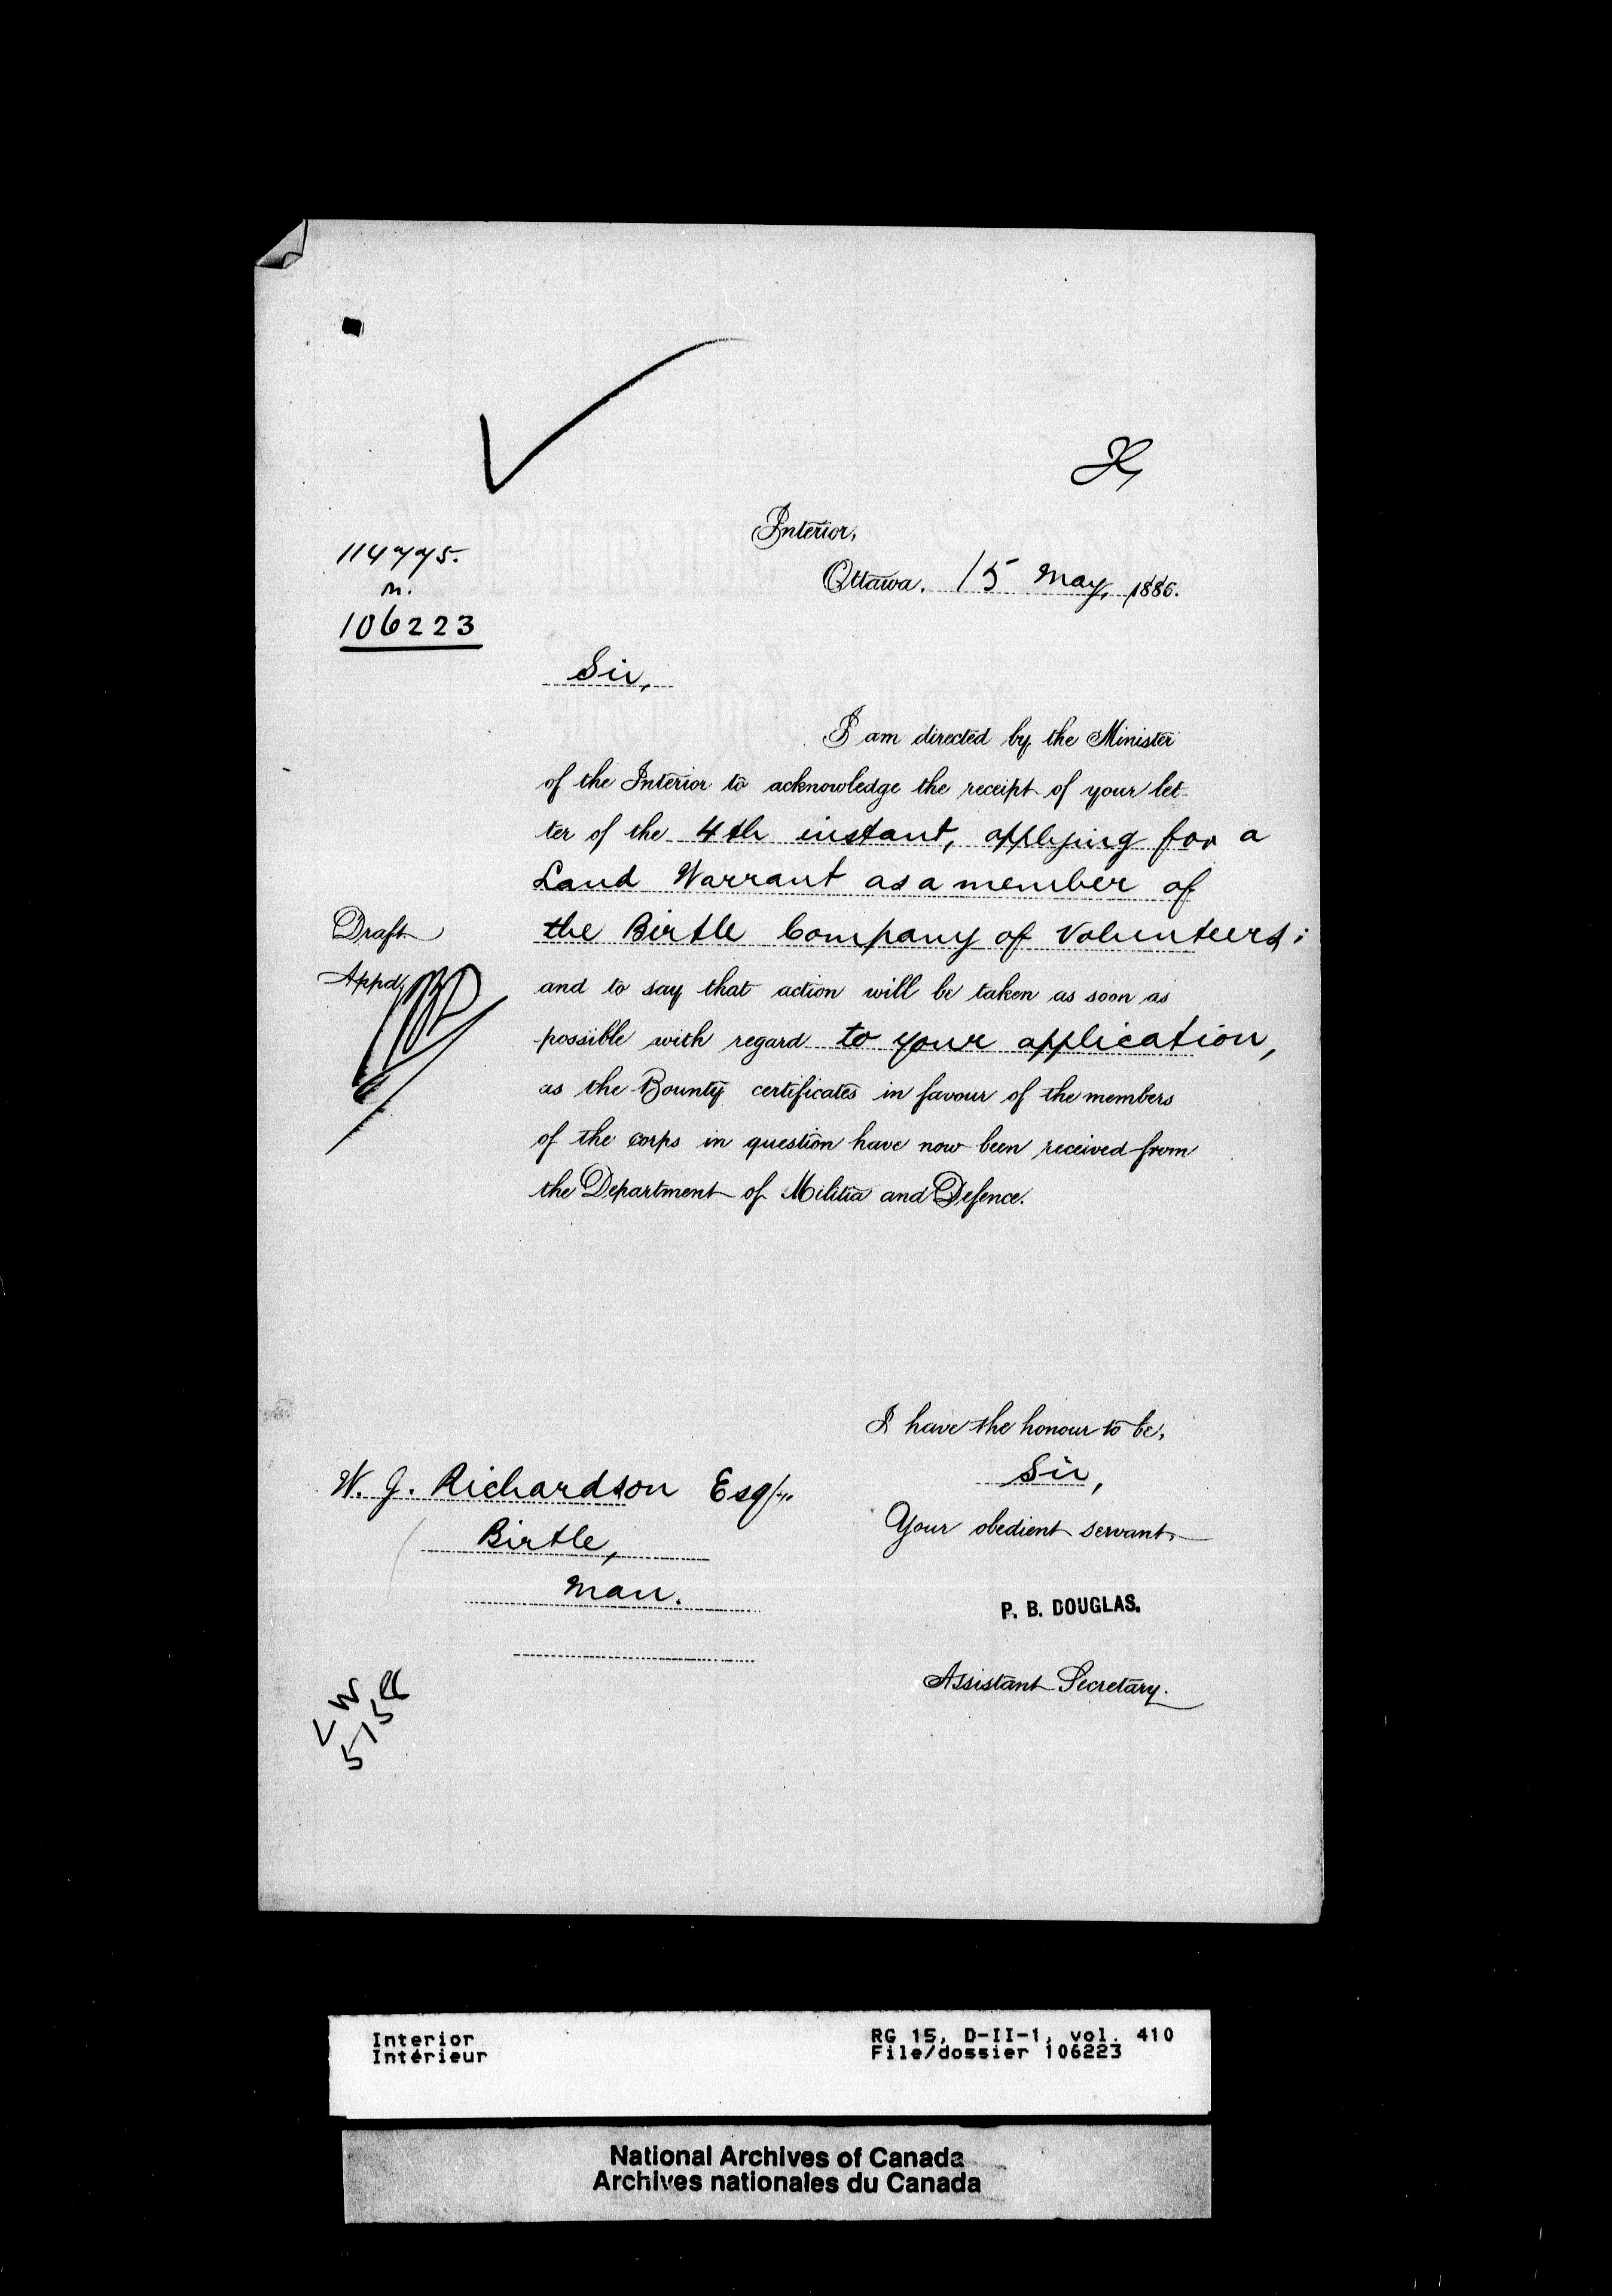 Interior,
Ottawa. 15 May, 1886.
114775.
M.
106223
Sir,
I am directed by the Minister
of the Interior to acknowledge the receipt of your let-
ter of the 4th instant, applying for a
Land Warrant as a member of
the Birtle Company of Volunteers;
Draft
Appd,
and to say that action will be taken as soon as
possible with regard to your application,
as the Bounty certificates in favour of the members
of the corps in question have now been received from
the Department of Militia and Defence.
I have the honour to be,
Sir,
Your obedient servant,
P. B. DOUGLAS.
Assistant Secretary.
W. J. Richardson Esq/r.
Birtle,
Man.
Interior
Intérieur
RG 15, D-II-1, vol. 410
File/dossier 106223
National Archives of Canada
Archives nationales du Canada